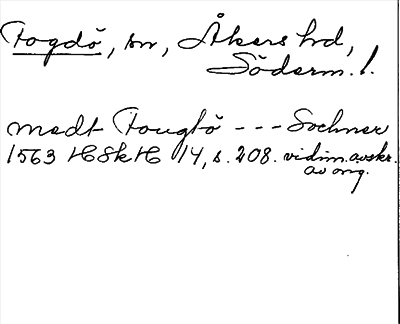 Fogdö, sn, Åkers hd,
Söderm. l.
medt Fougtö --- Sochner
1563 HSkH 14, s. 208. vidim. avskr.
av orig.